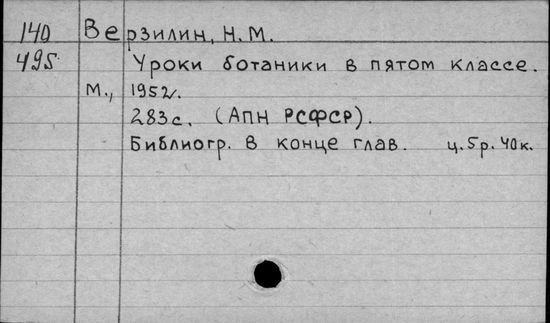 140 Верзилин, Н.М.
495 Уроки ботаники в пятом классе.
М., 1952г.
283с. (АПН РСФСР).
Библиогр. в конце глав. ц.5р.40к.